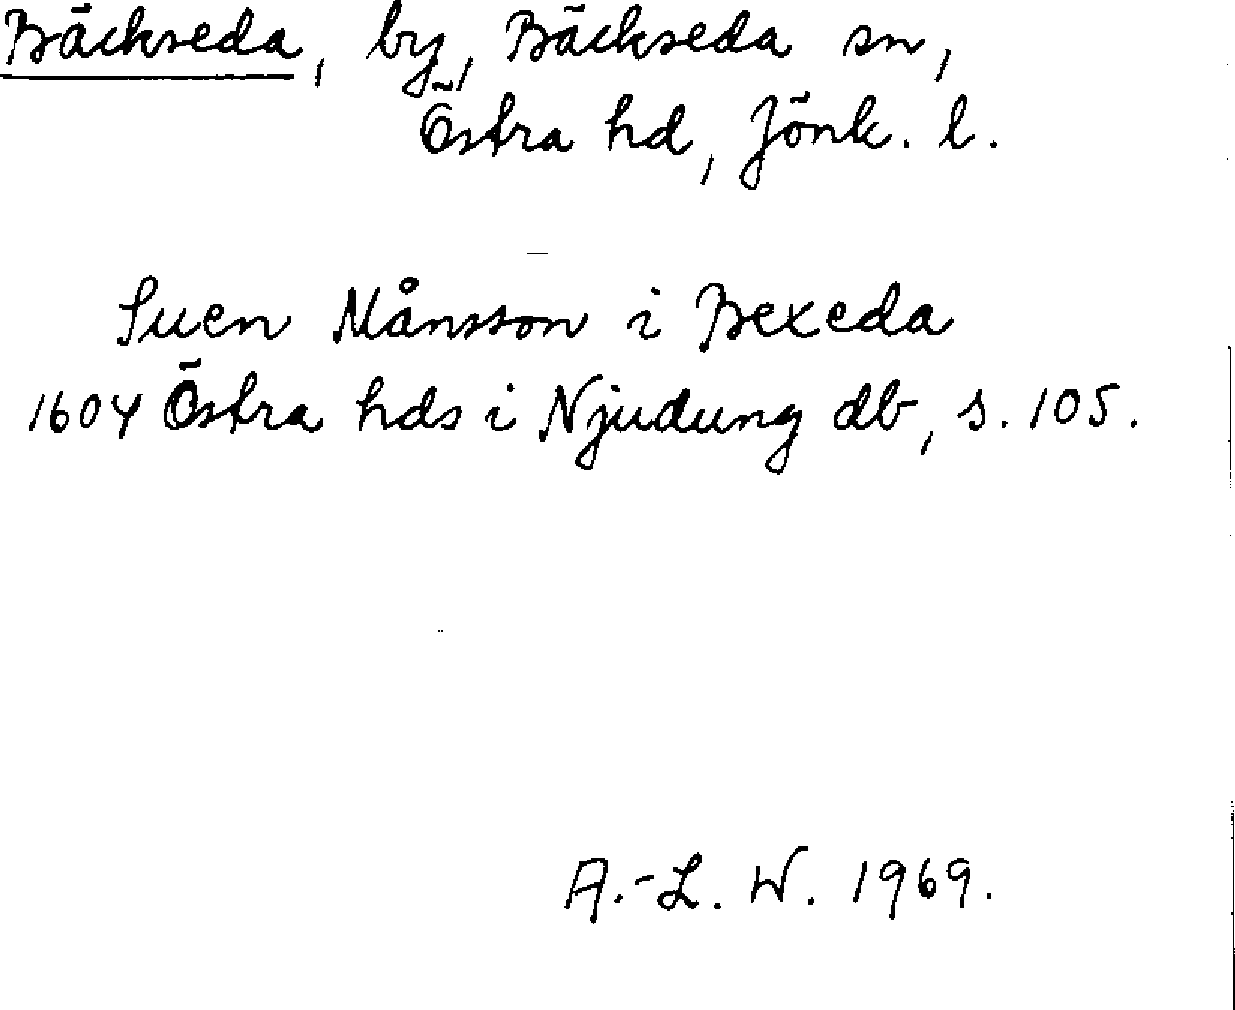 Bäckseda, by, Bäckseda sn,
Östra hd, Jönk. l.
Suen Månsson i Bexeda
1604 Östra hds i Njudung db, s. 105.
A.-L. W. 1969.